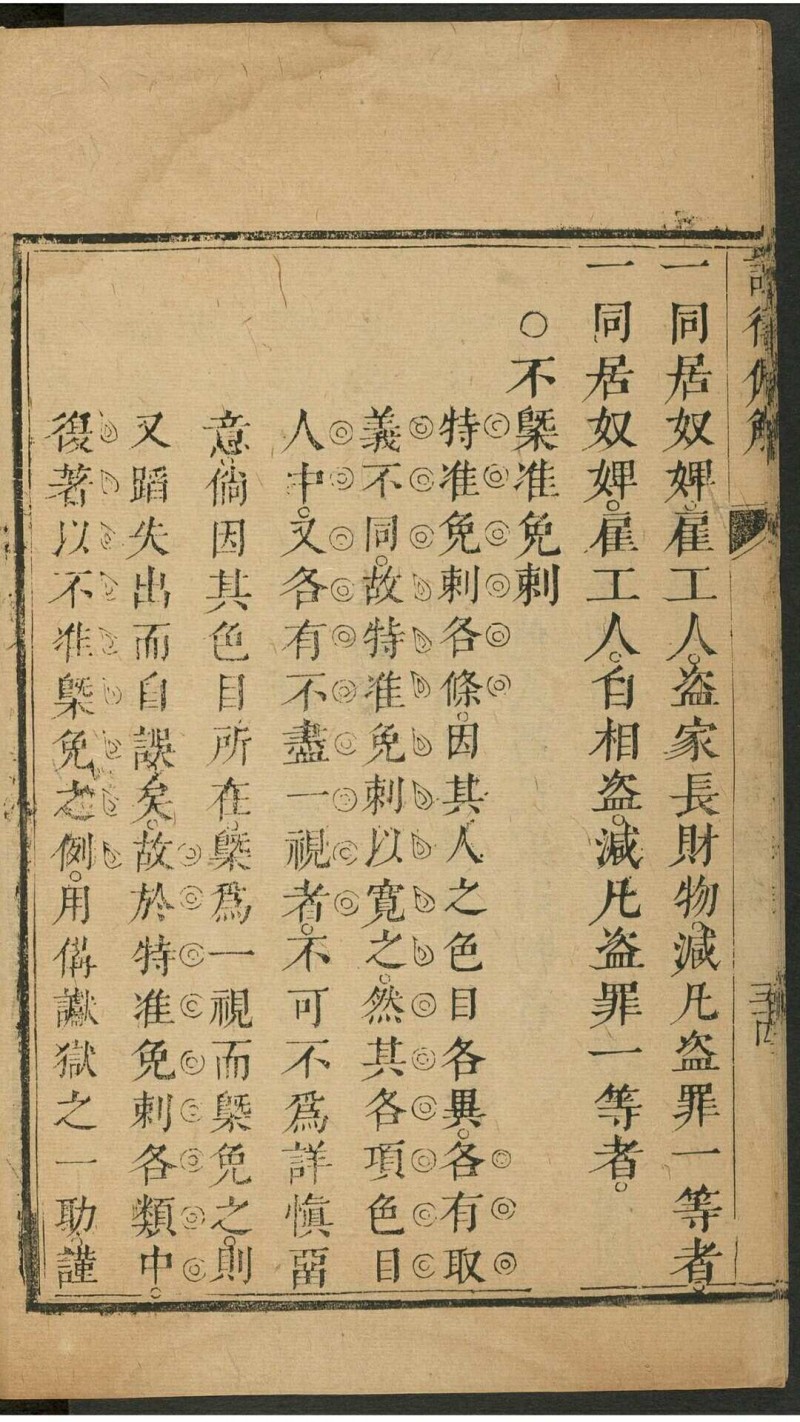 一同居奴婢。雇工人。盗家長財物。減凡盗罪一等者。
一同居奴婢。雇工人。自相盗。減凡盗罪一等者。
○不槩准免刺
特准免刺各條。因其人之色目各異。各有取
義不同。故特准免刺以寛之。然其各項色目
人中。又各有不盡一視者。不可不爲詳愼畱
意。倘因其色目所在。槩爲一視而槩免之。則
又蹈失出而自誤矣。故於特准免刺各類中。
復著以不准槩免之例。用備讞獄之一助。謹